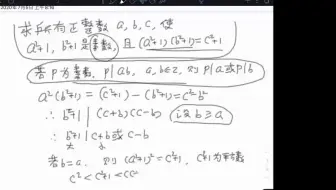 2020年7月8日上午
求所有正整数 a, b, c, 使
a²+1, b²+1 是素数, 且 (a²+1)(b²+1)=c²+1
若 P 为素数, P|ab, a, b∈Z, 则 P|a 或 P|b
a²(b²+1) = (c²+1) - (b²+1) = c²-b²
∴ b²+1 | (c+b)(c-b) 设 b≥a
∴ b²+1 | c+b 或 c-b
若 b=a, 则 (a²+1)²=c²+1, c²+1 为平方数
c² < c²+1 < (c